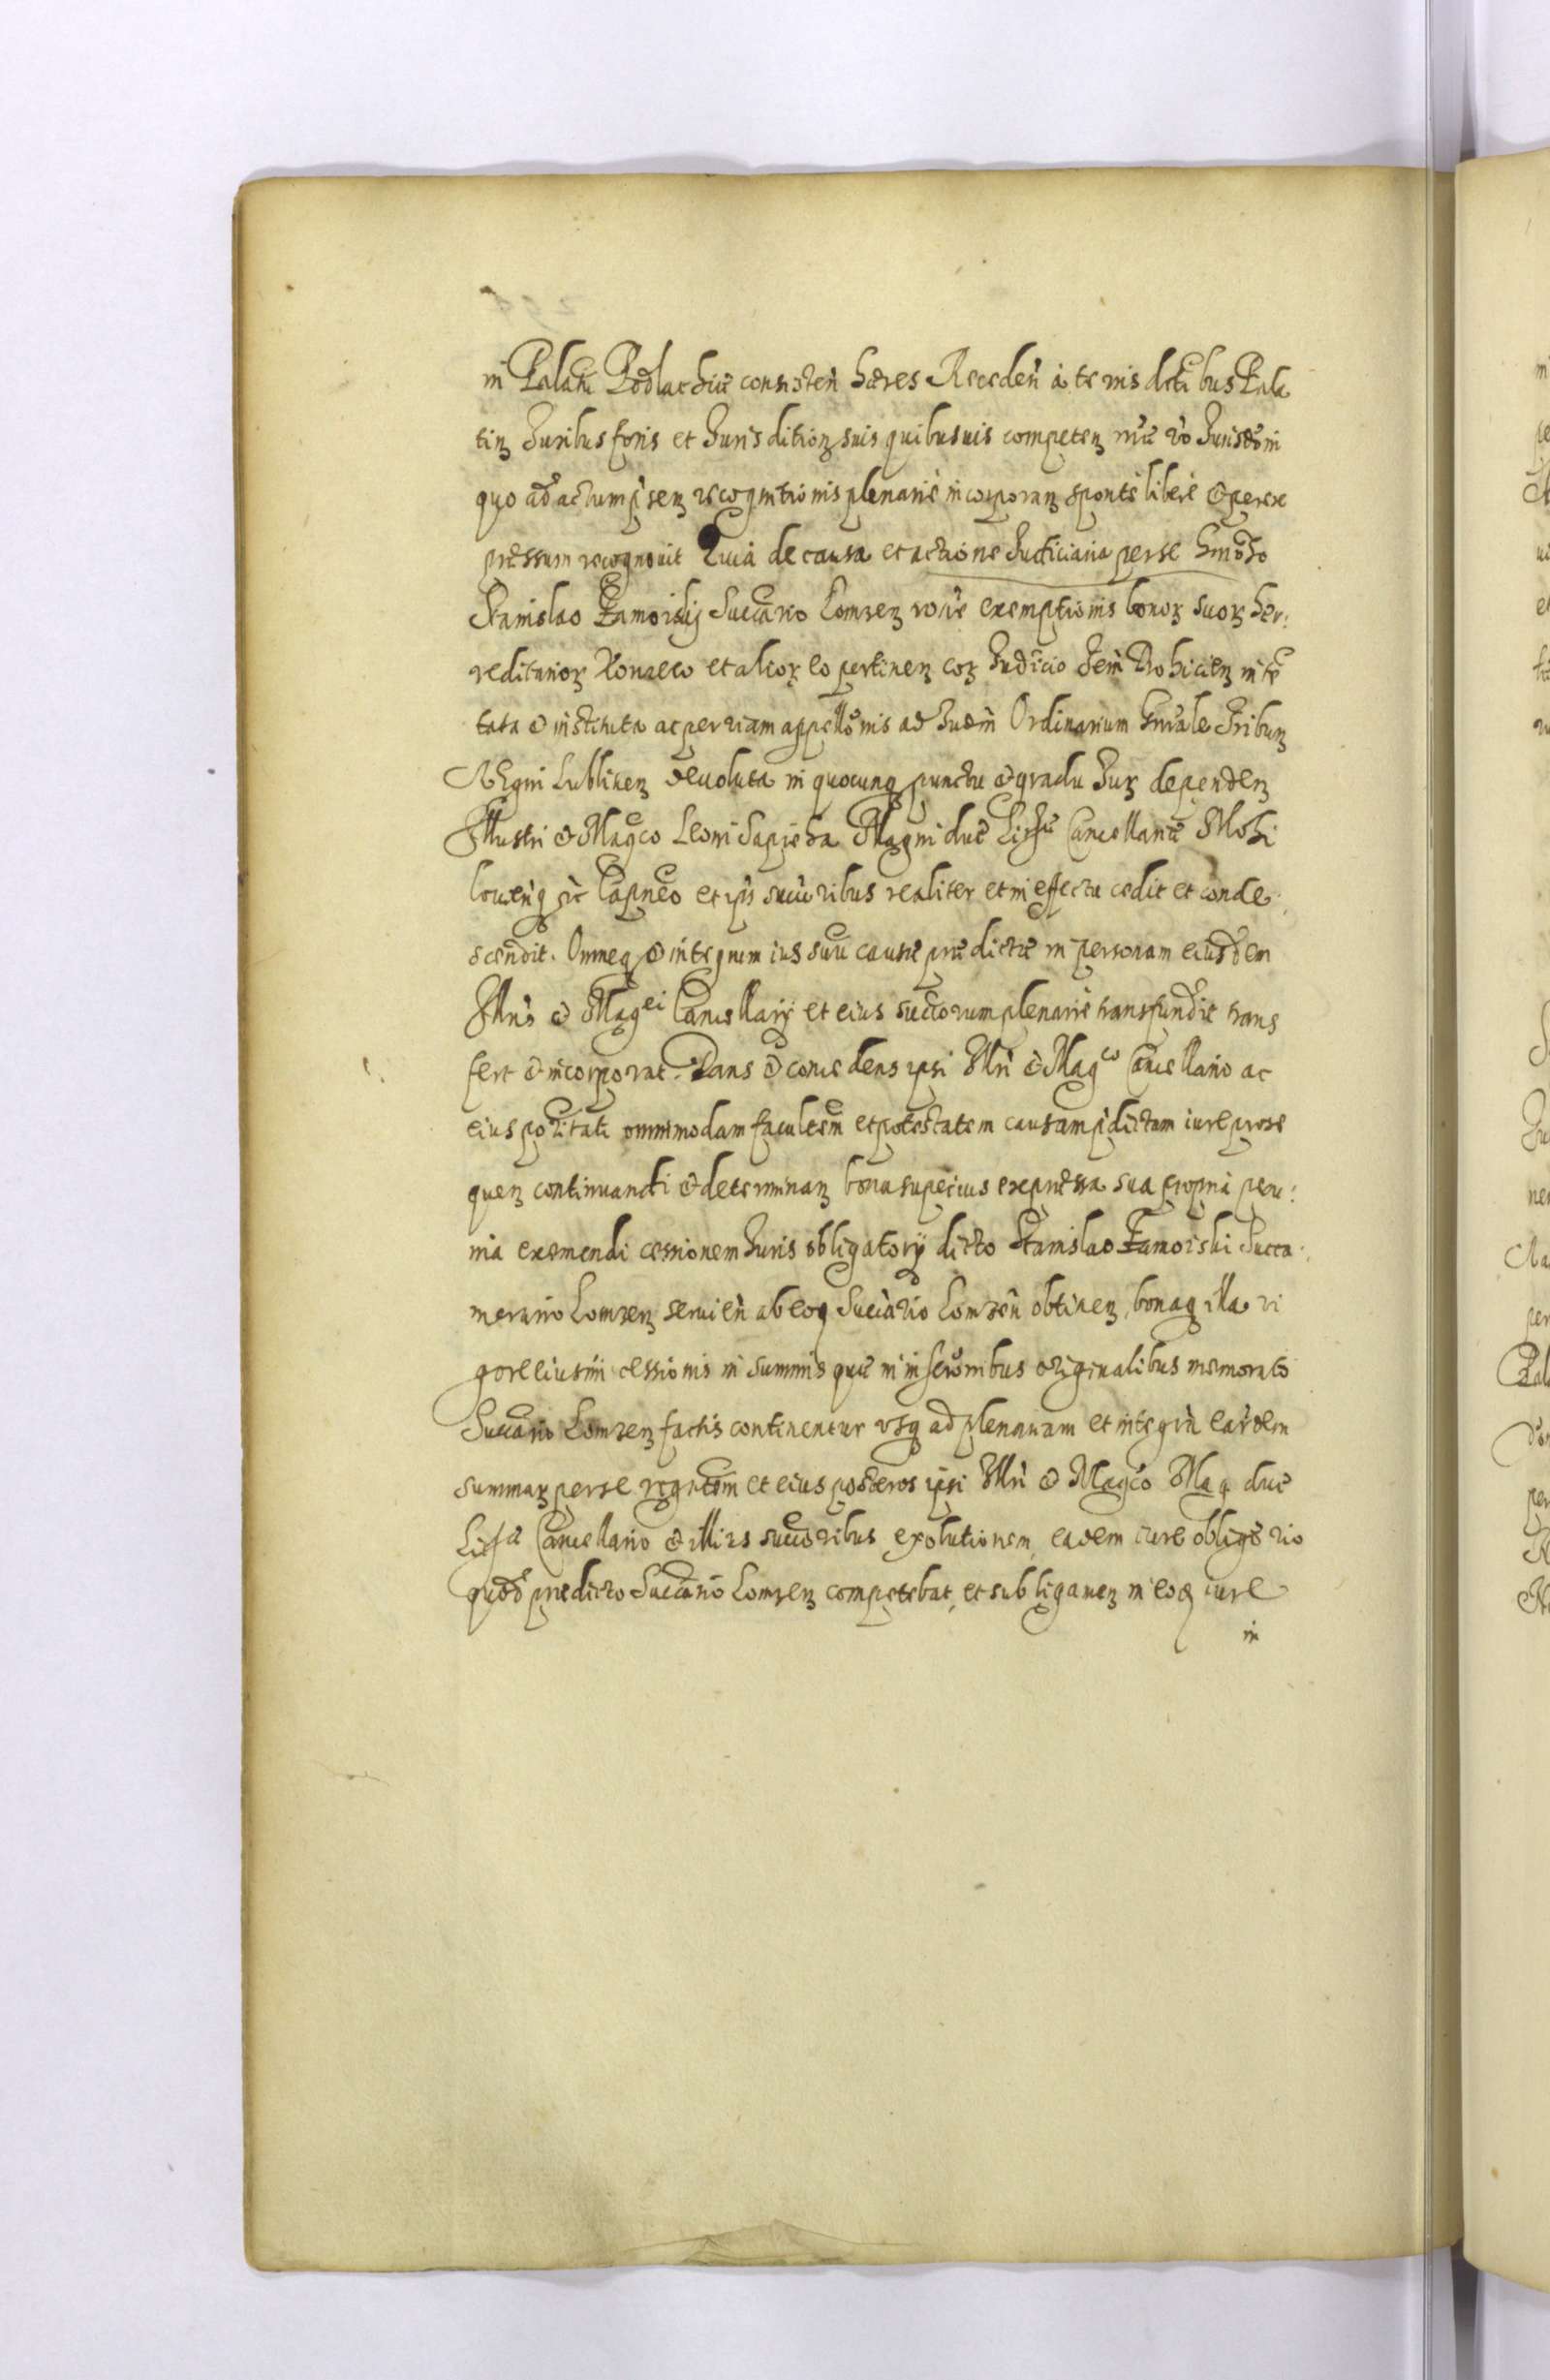 in Palatu Podlachiæ consisten hæres Receden à terris dictibus Pala
tiz Iuribus foris et Iurisdition suis quibusuis competen nuc vo Iurisdoni
quo ad actum pnsen recognitionis plenarie incorporan sponte libere & perex
pressum recognouit Quia de causa et actione Iudiciaria per se Gnoso
Stanislao Zamoiskij Succario Lomzen roñe exemptionis bonor suor her:
reditarior et alior eo pertinen cor Iudicio Terri Drohicien inte
tata & instituta ac per viam appellonis ad Iudm Ordinarium Gnrale Tribun
Regni Lublinen deuoluta in quocunq punctu & gradu Iur dependen
Illustri & Magco Leoni Sapieha Magni duc Lithu Cancellario Mohi
louienq Capneo et ipsi succoribus realiter et in effectu cedit et conde
scendit. Omneq & integrum ius suu causæ prædictæ in personam eiusdem
Illris & Magci Cancellarij et eius succorum plenarie transfundit trans
fert & incorporat. Dans & concedens ipsi Illri & Magco Cancellario ac
eius poritati omnimodam facultem et potestatem causam pdictam iure prose
quen continuandi & determinan bona superius expressa sua propria pecu:
nia exemendi cessionem Iuris obligatorij dicto Stanislao Zamoiski Succa:
merario Lomzen seruien ab eoq Succario Lomzen obtinen, bonaq illa vi
gore eiusmi cessionis in summis quæ in inscronibus originalibus memorato
Succario Lomzen factis continentur vsq ad plenariam et integra earudem
summar per se rgntem et eius posteros ipsi Illri & Magco Mag duc
Lithu Cancellario & illius succoribus exolutionem, eadem iure obligorio
quod prædicto Succario Lomzen competebat, et sub ligamen in eoq iure
in